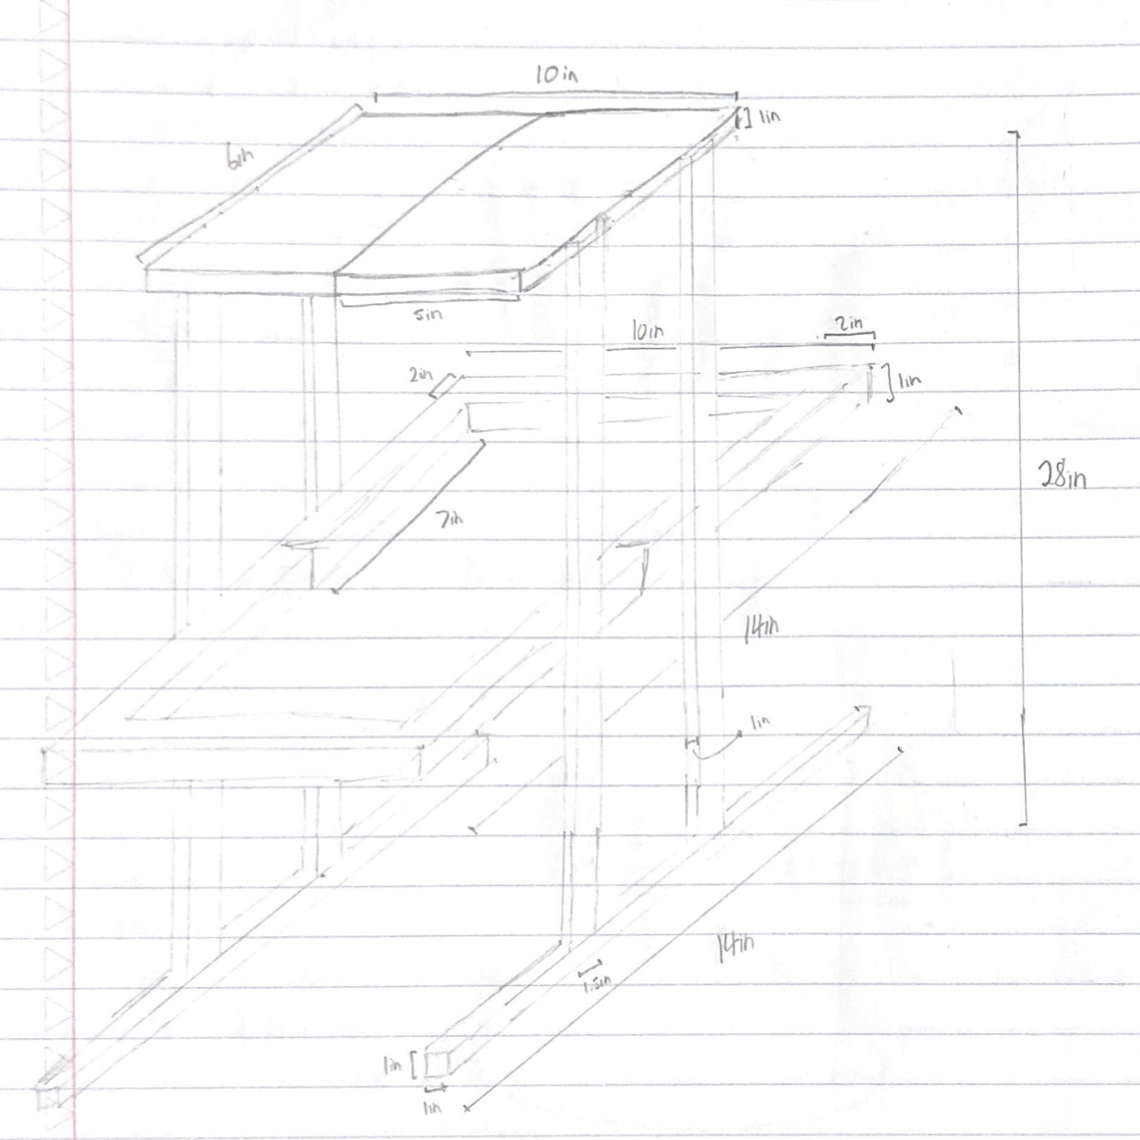 10in
1in
6in
5in
10in
2in
2in
1in
28in
7in
14in
1in
14in
1.5in
1in
1in